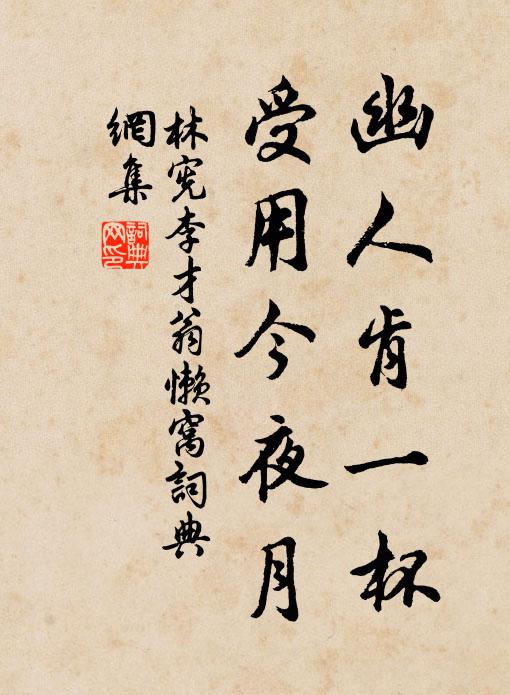 幽人肯一杯
受用今夜月
林宪李才翁懒窝詞典
網集
詞典
网印